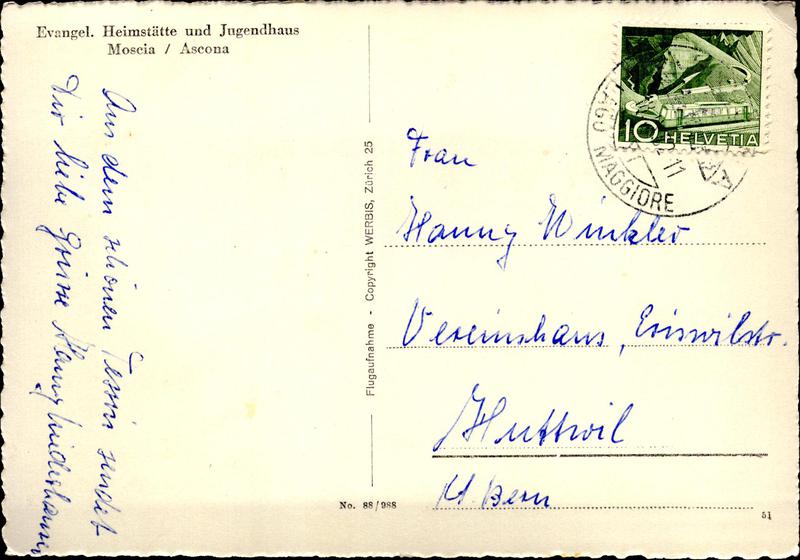 Evangel. Heimstätte und Jugendhaus
Moscia / Ascona
Aus dem schönen Tessin sendet
Dir liebe Grüsse Hanny
Flugaufnahme - Copyright WERBIS, Zürich 25
No. 88/988
10 HELVETIA
LAGO MAGGIORE
11
Frau
Hanny Winkler
Vereinshaus, Eriswilstr.
Huttwil
Kt. Bern
51